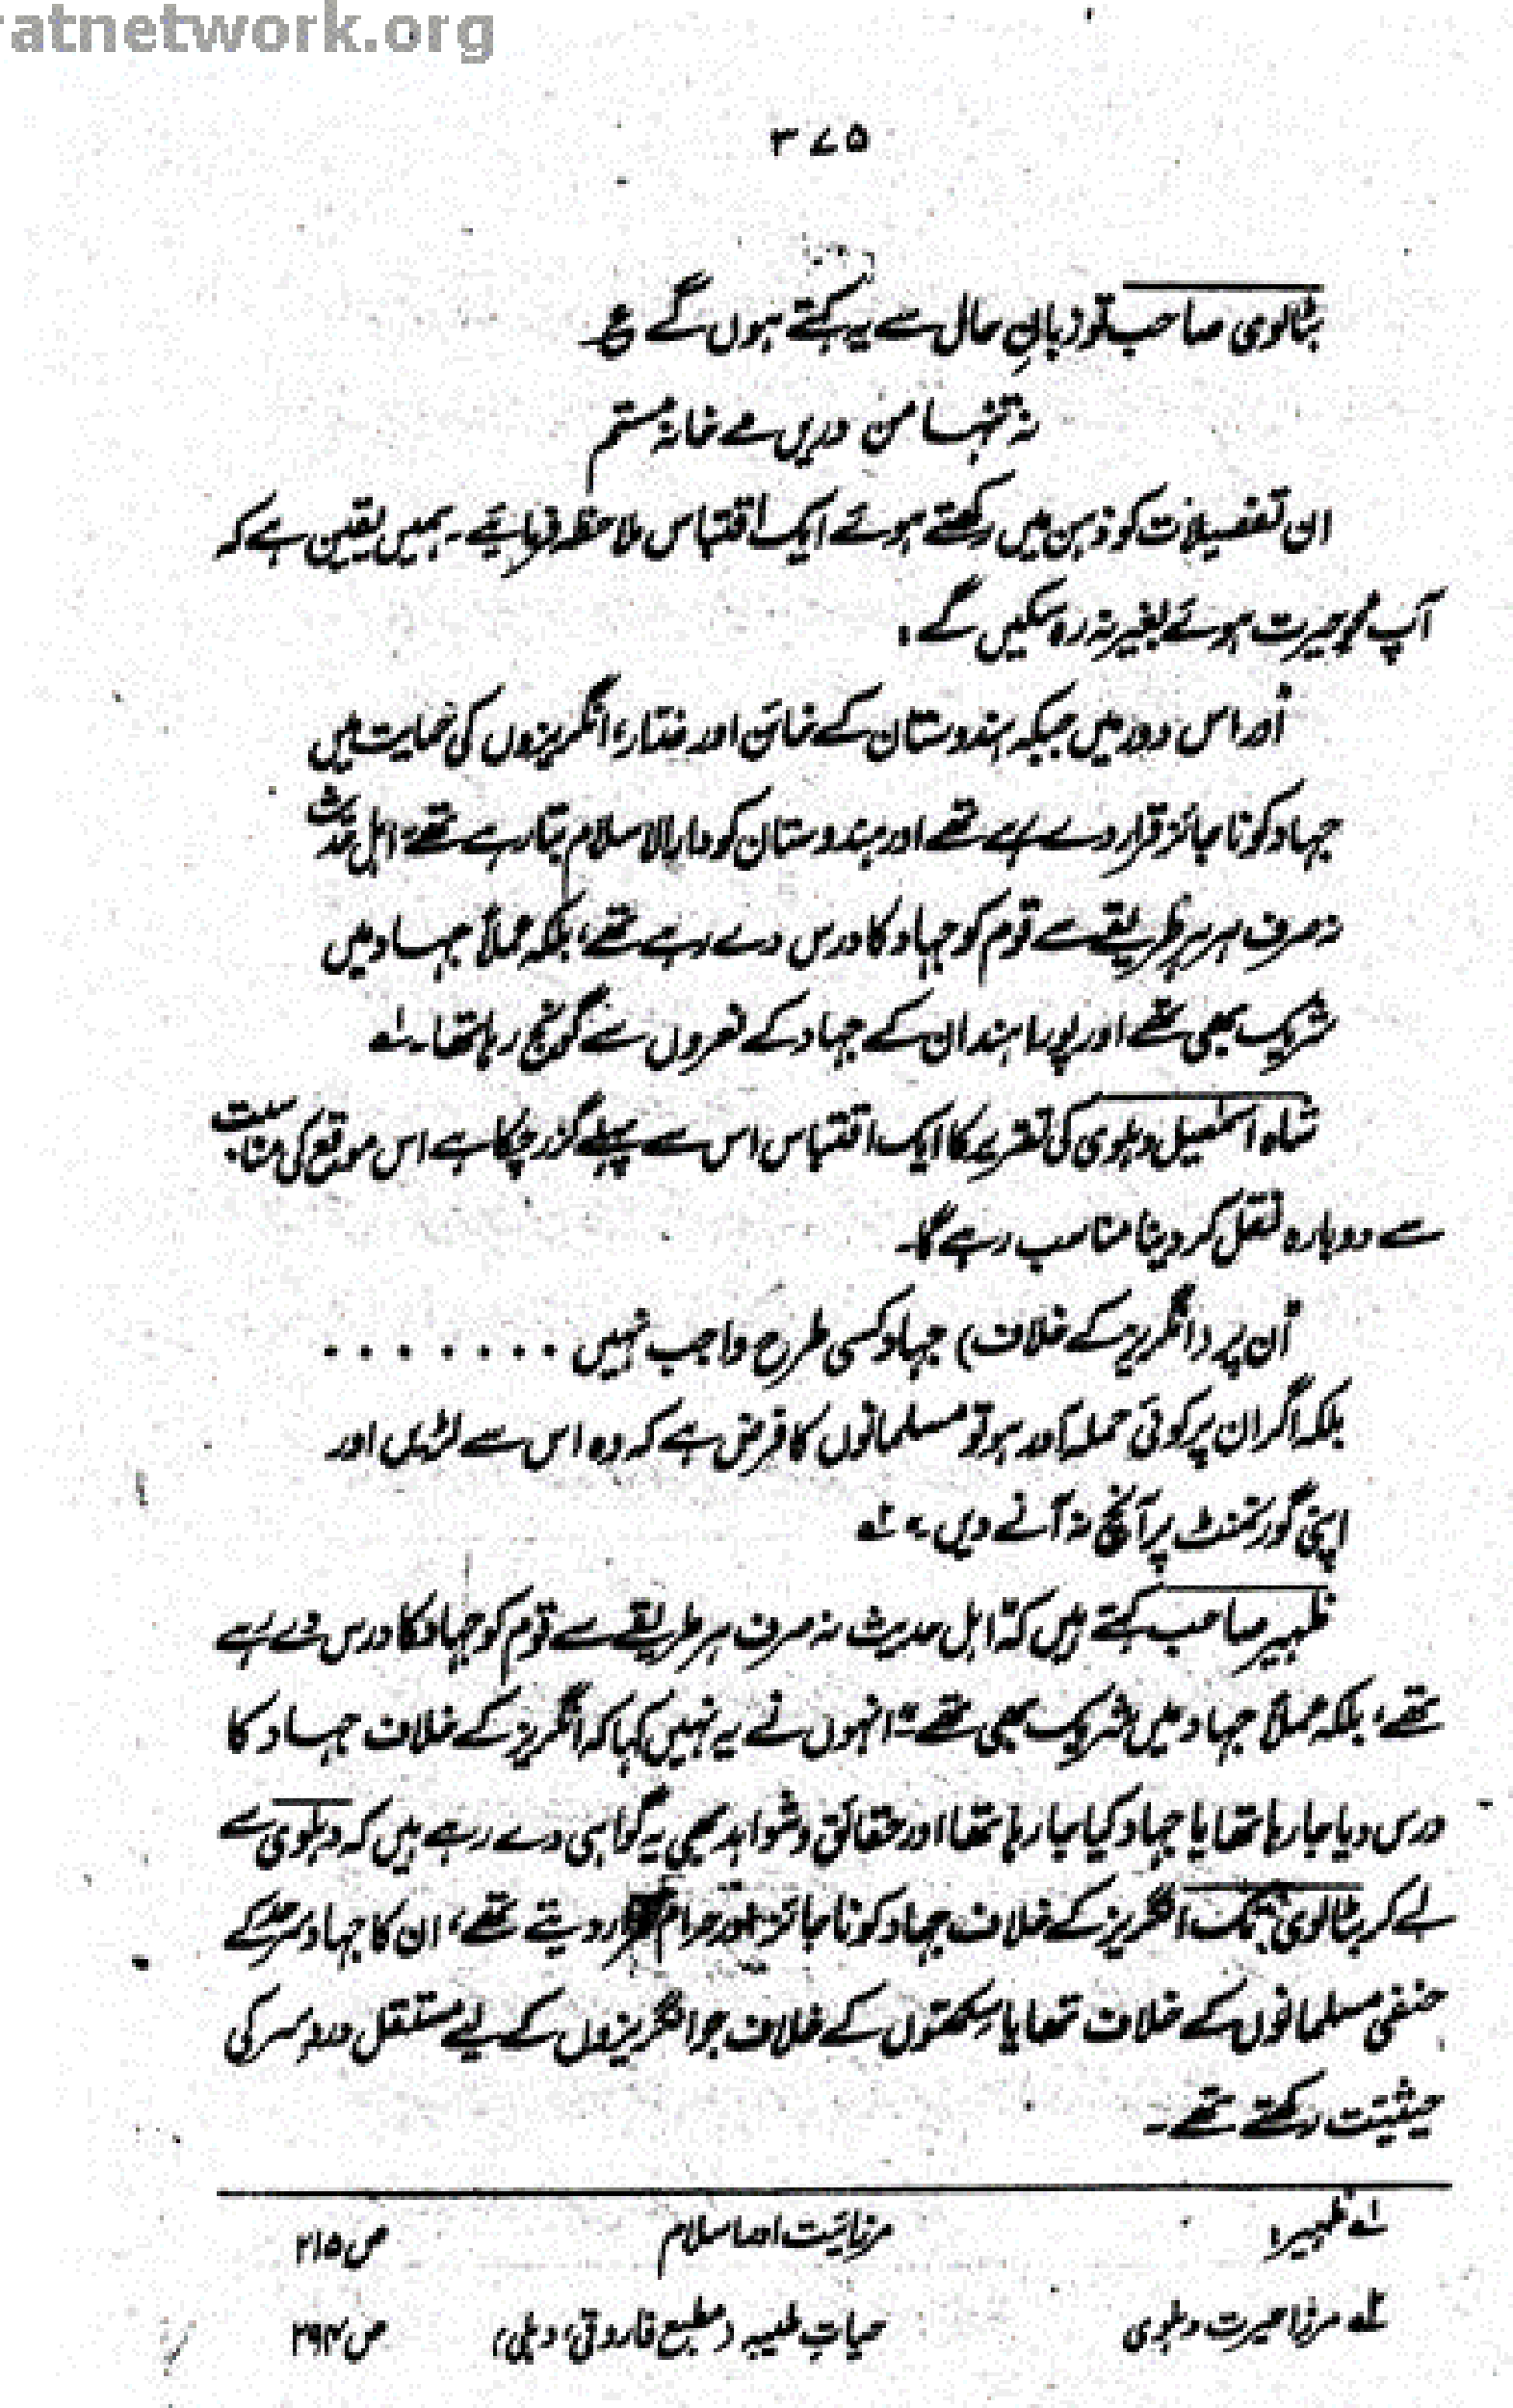 ratnetwork.org
۳۷۵
بٹالوی صاحب تو زبانِ حال سے یہ کہتے ہوں گے ؏
نہ تنہا من دریں مے خانہ مستم
ان تفصیلات کو ذہن میں رکھتے ہوئے ایک اقتباس ملاحظہ فرمایئے۔ ہمیں یقین ہے کہ
آپ محوِ حیرت ہوئے بغیر نہ رہ سکیں گے :
"اور اس دور میں جبکہ ہندوستان کے خائن اور غدار، انگریزوں کی حمایت میں
جہاد کو ناجائز قرار دے رہے تھے اور ہندوستان کو دارالاسلام بتا رہے تھے، اہل حدیث
نہ صرف ہر ہر طریقے سے قوم کو جہاد کا درس دے رہے تھے، بلکہ عملاً جہاد میں
شریک بھی تھے اور پورا ہند ان کے جہاد کے نعروں سے گونج رہا تھا۔ ؎۱
شاہ اسمٰعیل دہلوی کی تقریر کا ایک اقتباس اس سے پہلے گزر چکا ہے اس موقع کی مناسبت
سے دوبارہ نقل کر دینا مناسب رہے گا۔
"اُن پر (انگریز کے خلاف) جہاد کسی طرح واجب نہیں ........
بلکہ اگر ان پر کوئی حملہ آور ہو تو مسلمانوں کا فرض ہے کہ وہ اس سے لڑیں اور
اپنی گورنمنٹ پر آنچ نہ آنے دیں۔" ؎۲
ظہیر صاحب کہتے ہیں کہ "اہل حدیث نہ صرف ہر طریقے سے قوم کو جہاد کا درس دے رہے
تھے، بلکہ عملاً جہاد میں شریک بھی تھے" انہوں نے یہ نہیں کہا کہ انگریز کے خلاف جہاد کا
درس دیا جا رہا تھا یا جہاد کیا جا رہا تھا اور حقائق و شواہد بھی یہ گواہی دے رہے ہیں کہ دہلوی سے
لے کر بٹالوی تک انگریز کے خلاف جہاد کو ناجائز اور حرام قرار دیتے تھے، ان کا جہاد سرحد کے
حنفی مسلمانوں کے خلاف تھا یا سکھوں کے خلاف جو انگریزوں کے لیے مستقل دردِ سر کی
حیثیت رکھتے تھے۔
؎۱ ظہیر: مرزائیت اور اسلام ص ۲۱۵
؎۲ مرزا حیرت دہلوی حیاتِ طیبہ (مطبع فاروقی، دہلی) ص ۲۹۴